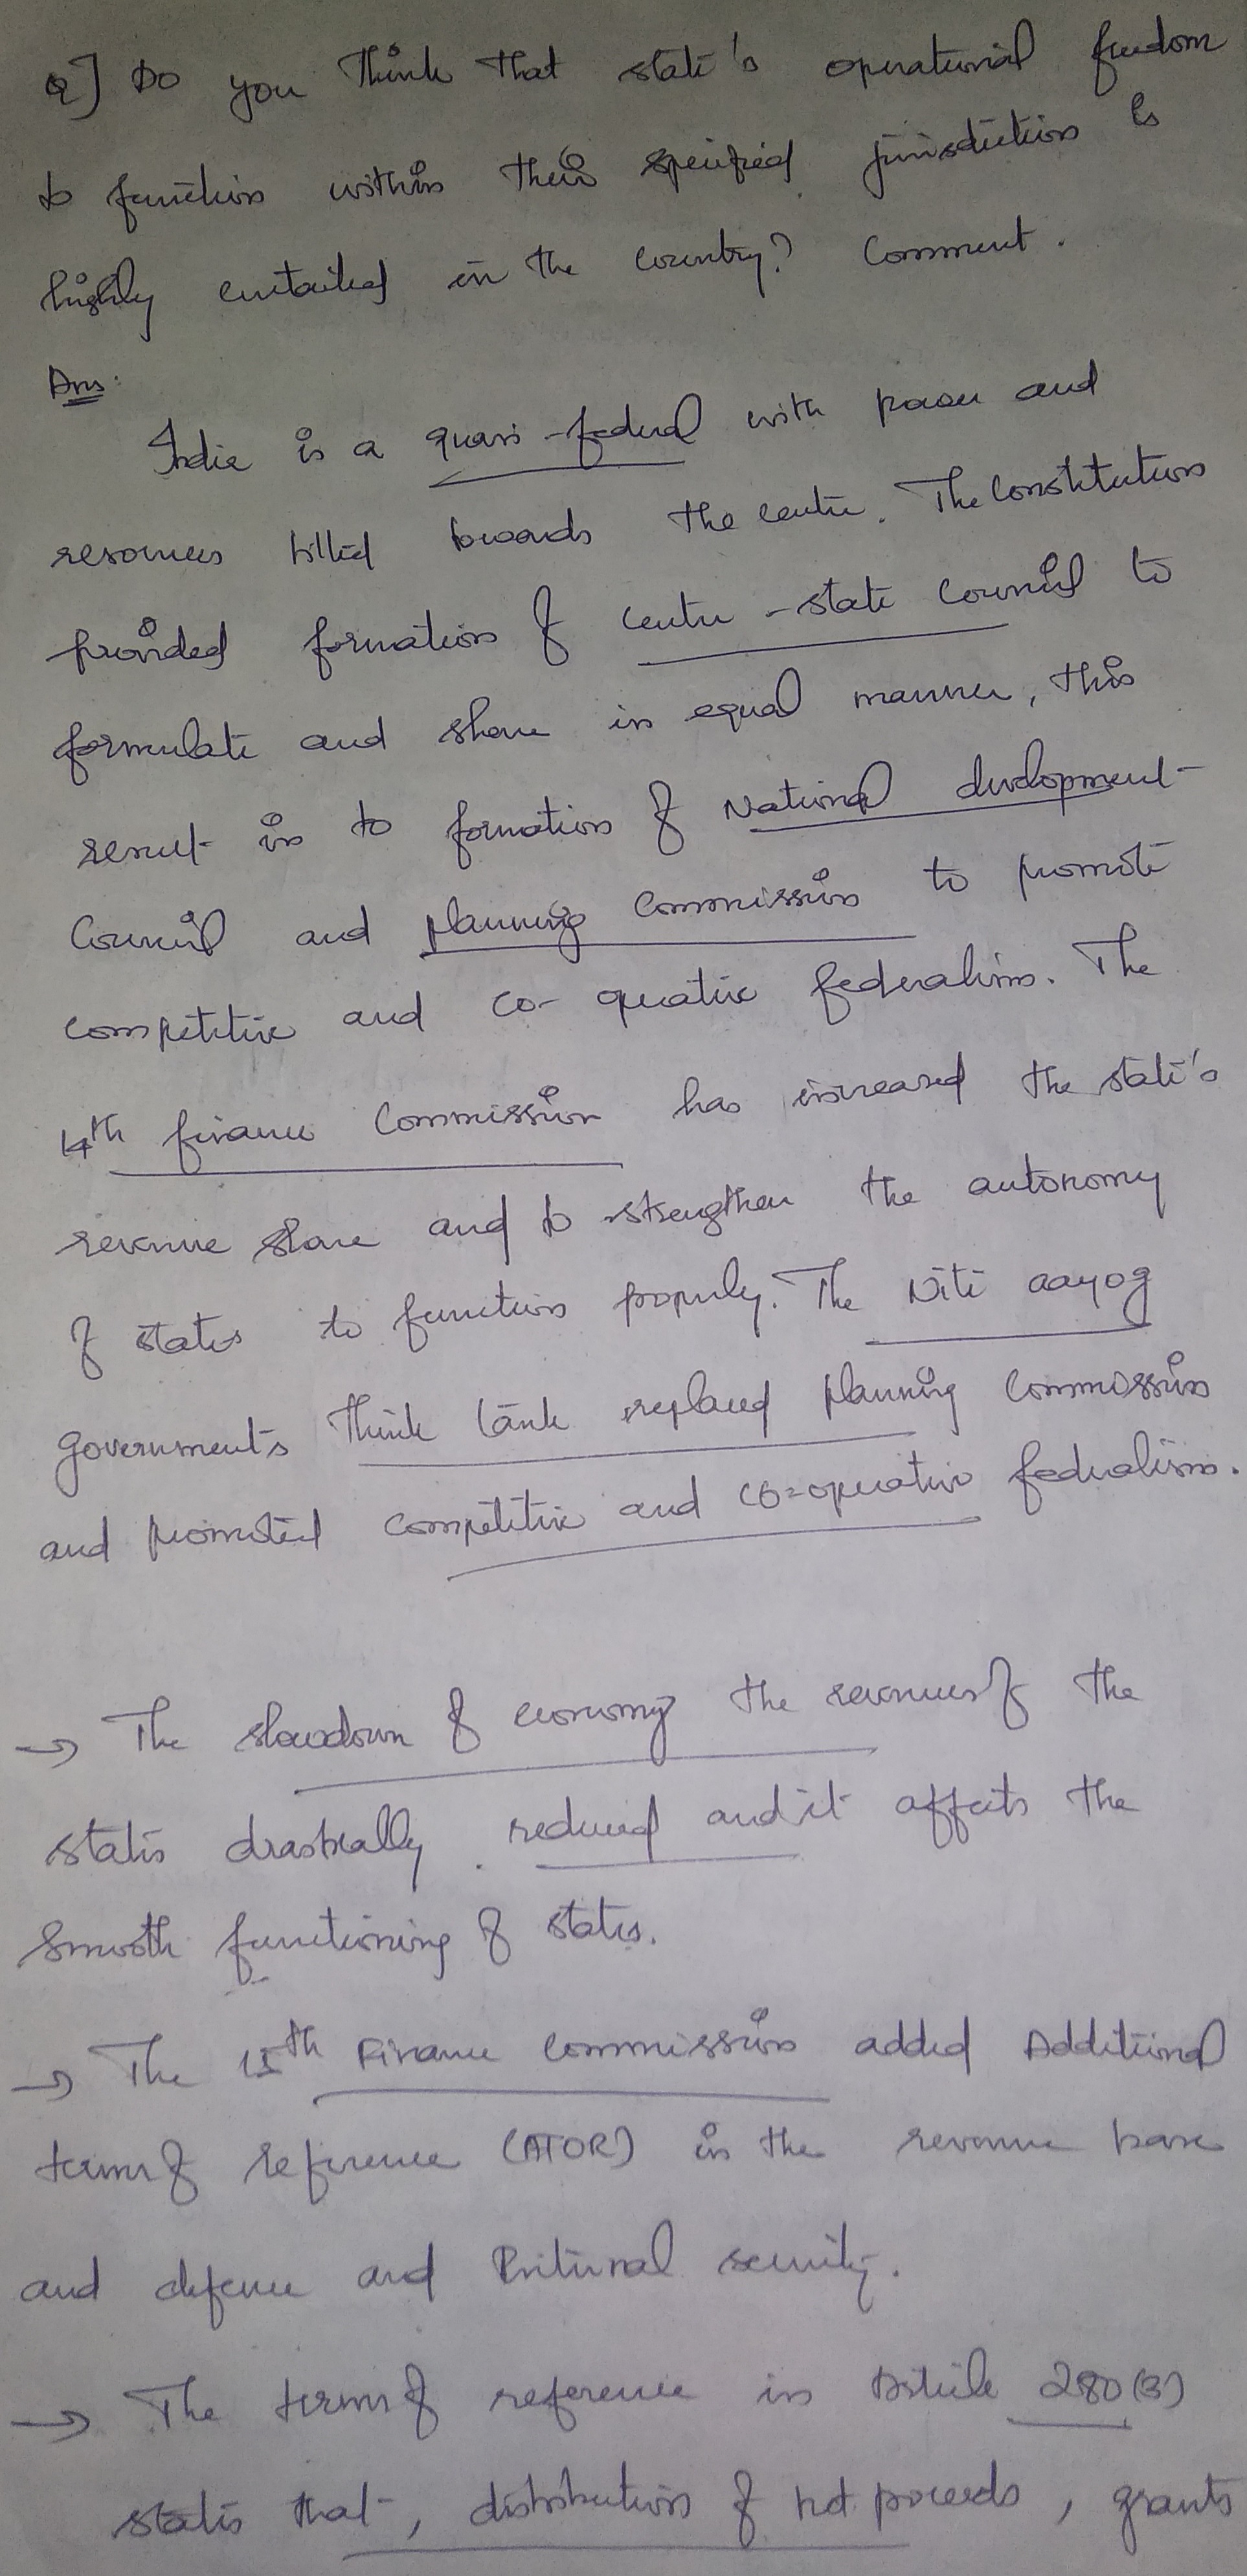 Q] Do you think that state's operational freedom
to function within their specified jurisdiction is
highly curtailed in the country? Comment.
Ans:
India is a quasi-federal with power and
resources tilted towards the centre. The Constitution
provided formation of centre-state council to
formulate and share in equal manner, this
result in to formation of National development
Council and planning Commission to promote
competitive and co-operative federalism. The
14th finance Commission has increased the state's
revenue share and to strengthen the autonomy
of states to function properly. The Niti aayog
government's think tank replaced planning Commission
and promoted competitive and co=operative federalism.
→ The slowdown of economy the revenues of the
states drastically reduced and it affects the
smooth functioning of states.
→ The 15th Finance commission added Additional
terms of reference (ATOR) in the revenue base
and defence and Internal security.
→ The terms of reference in Article 280(3)
states that, distribution of net proceeds, grants